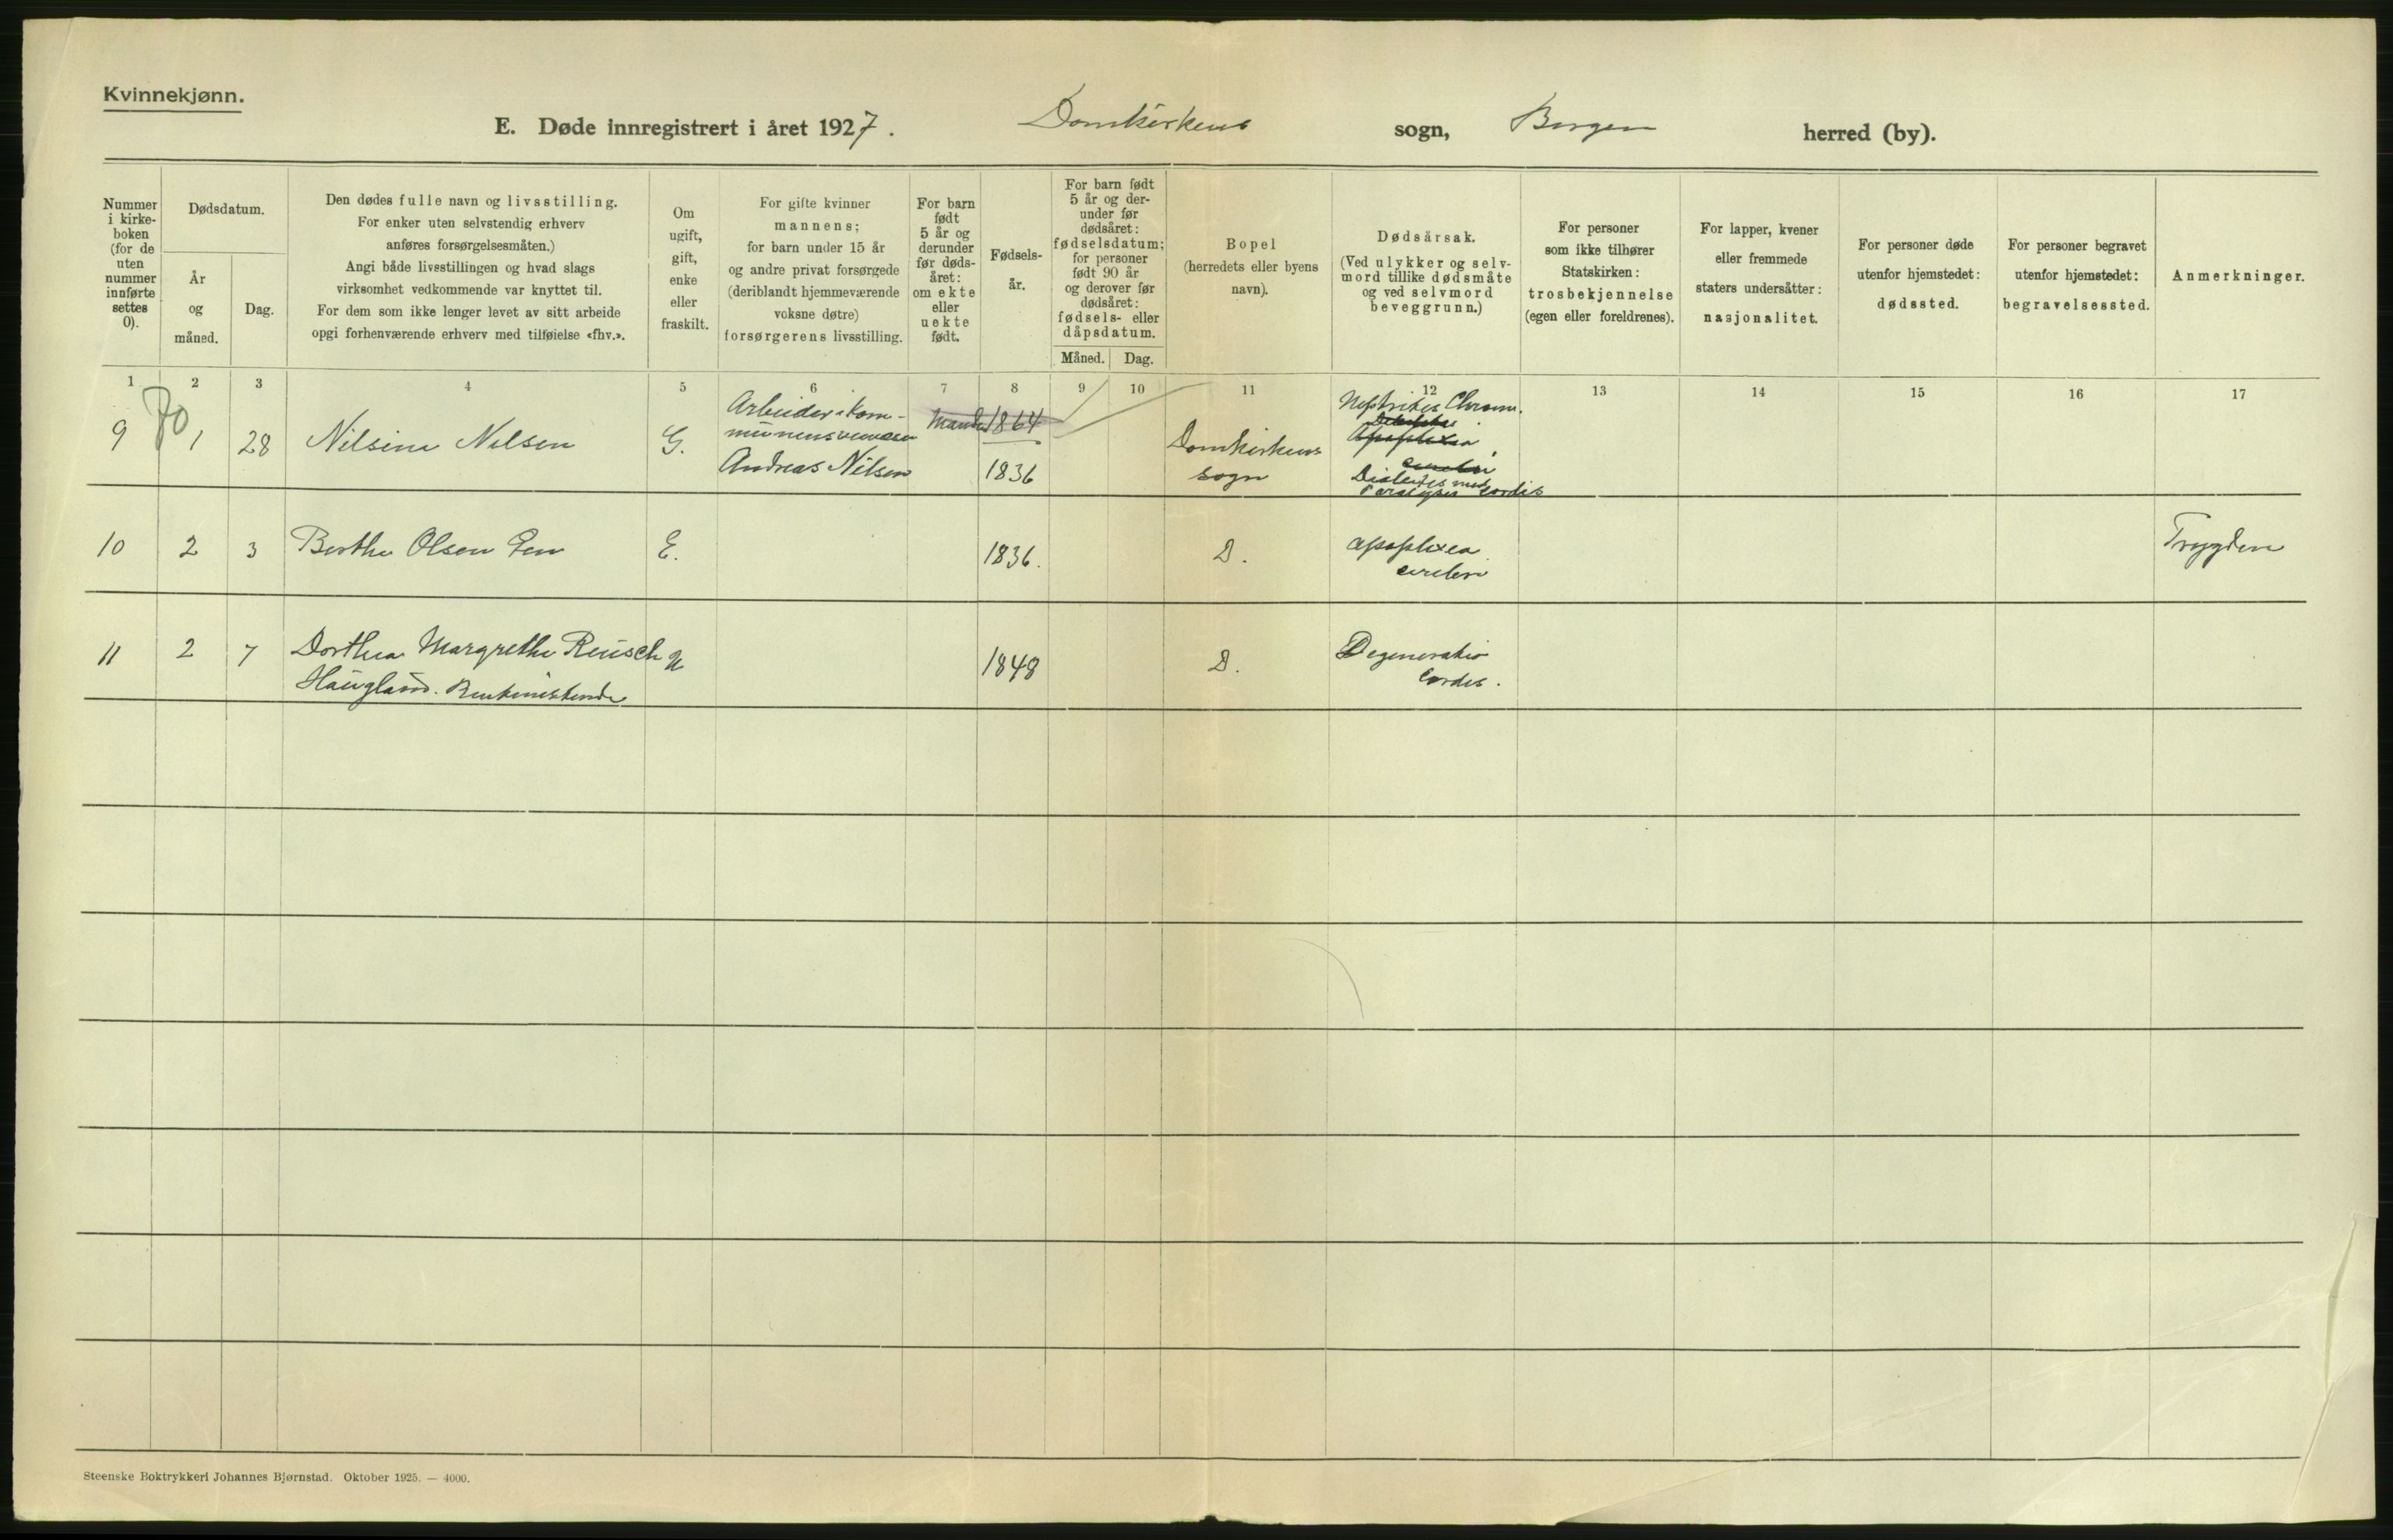 Kvinnekjønn.
E. Døde innregistrert i året 1927. Domkirkens sogn, Bergen herred (by).
Nummer i kirke- boken (for de uten nummer innførte settes 0).
Dødsdatum.
År og måned.
Dag.
Den dødes fulle navn og livsstilling.
For enker uten selvstendig erhverv
anføres forsørgelsesmåten.)
Angi både livsstillingen og hvad slags
virksomhet vedkommende var knyttet til.
For dem som ikke lenger levet av sitt arbeide
opgi forhenværende erhverv med tilføielse «fhv.».
Om
ugift,
gift,
enke
eller
fraskilt.
For gifte kvinner
mannens;
for barn under 15 år
og andre privat forsørgede
(deriblandt hjemmeværende
voksne døtre)
forsørgerens livsstilling.
For barn
født
5 år og
derunder
før døds-
året:
om ekte
eller
uekte
født.
Fødsels-
år.
For barn født
5 år og der-
under før
dødsåret:
fødselsdatum;
for personer
født 90 år
og derover før
dødsåret:
fødsels- eller
dåpsdatum.
Måned. Dag.
Bopel
(herredets eller byens
navn).
Dødsårsak.
(Ved ulykker og selv-
mord tillike dødsmåte
og ved selvmord
beveggrunn.)
For personer
som ikke tilhører
Statskirken:
trosbekjennelse
(egen eller foreldrenes).
For lapper, kvener
eller fremmede
staters undersåtter:
nasjonalitet.
For personer døde
utenfor hjemstedet:
dødssted.
For personer begravet
utenfor hjemstedet:
begravelsessted.
Anmerkninger.
1 2 3 4 5 6 7 8 9 10 11 12 13 14 15 16 17
70
9 1 28 Nilsine Nilsen G.
Arbeider i kom-
Andreas Nilsen
1864
1836
Domkirkens
sogn
Nephritis Chron.
Apoplexia
Diabetes med
Paralysis cordis
10 2 3 Berthe Olsen E. 1836. D. apoplexia
cerebri
Trygden
11 2 7 Dorthea Margrethe Reusch U 1848 D. Degeneratio
Haugland. Cordis.
Steenske Boktrykkeri Johannes Bjørnstad. Oktober 1925. — 4000.